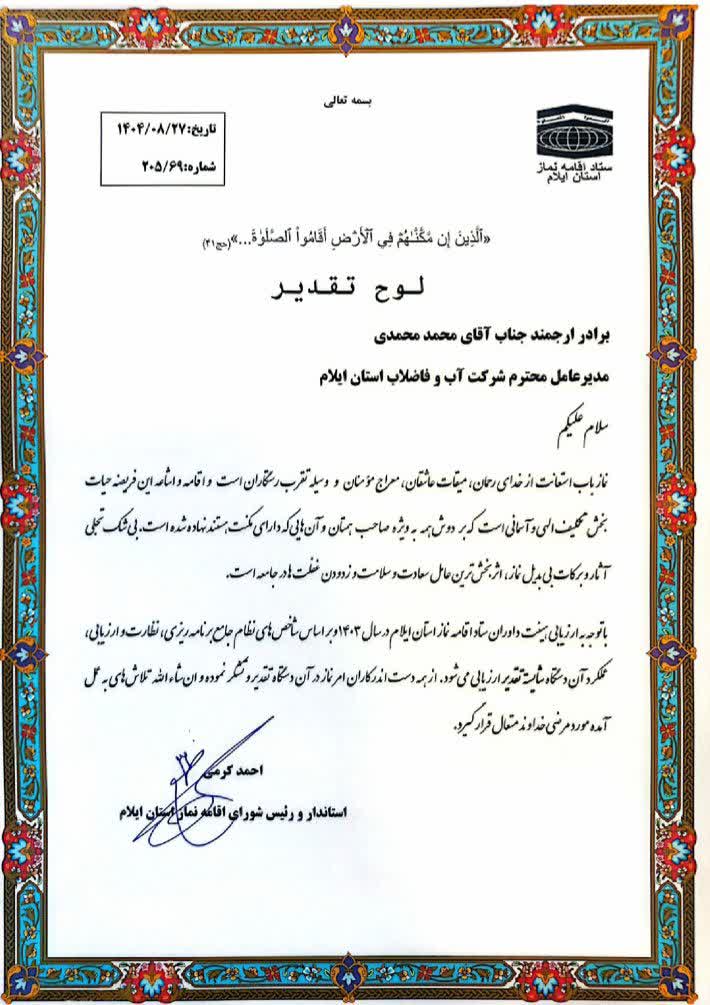 بسمه تعالی
ستاد اقامه نماز
استان ایلام
تاریخ:۱۴۰۴/۰۸/۲۷
شماره:۲۰۵/۶۹
«ٱلَّذِينَ إِن مَّكَّنَّٰهُمْ فِي ٱلْأَرْضِ أَقَامُواْ ٱلصَّلَوٰةَ...»(حج۴۱)
لوح تقدیر
برادر ارجمند جناب آقای محمد محمدی
مدیرعامل محترم شرکت آب و فاضلاب استان ایلام
سلام علیکم
نماز باب استعانت از خدای رحمان، میقات عاشقان، معراج مؤمنان و وسیله تقرب رستگاران است و اقامه و اشاعه این فریضه حیات
بخش تکلیف الهی و آسمانی است که بر دوش همه به ویژه صاحب همتان و آن هایی که دارای مکنت هستند نهاده شده است. بی شک تجلی
آثار و برکات بی بدیل نماز، اثربخش ترین عامل سعادت و سلامت و زدودن غفلت ها در جامعه است.
باتوجه به ارزیابی هیئت داوران ستاد اقامه نماز استان ایلام در سال ۱۴۰۳ و بر اساس شاخص های نظام جامع برنامه ریزی، نظارت و ارزیابی،
عملکرد آن دستگاه شایسته تقدیر ارزیابی می شود. از همه دست اندرکاران امر نماز در آن دستگاه تقدیر و تشکر نموده و ان شاء الله تلاش های به عمل
آمده مورد مرضی خداوند متعال قرار گیرد.
احمد کرمی
استاندار و رئیس شورای اقامه نماز استان ایلام